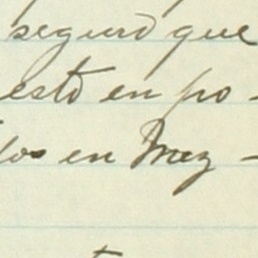 seguro que
esto en po-
los en Mez-